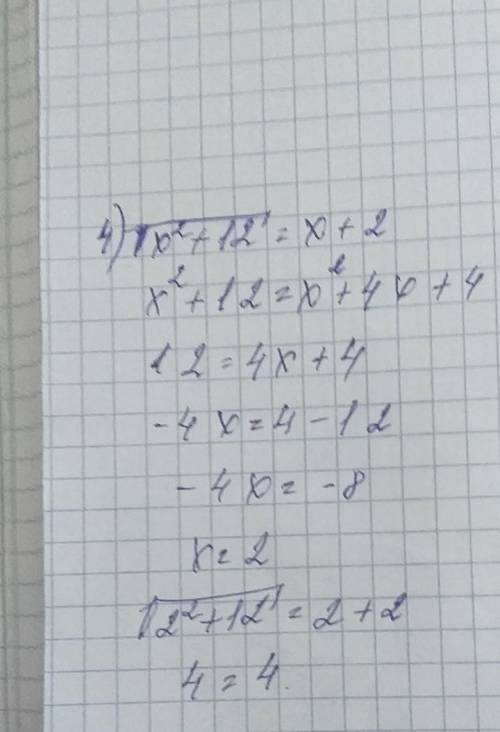 4) √x²+12 = x+2
x²+12=x²+4x+4
12=4x+4
-4x=4-12
-4x=-8
x=2
√2²+12 = 2+2
4=4.